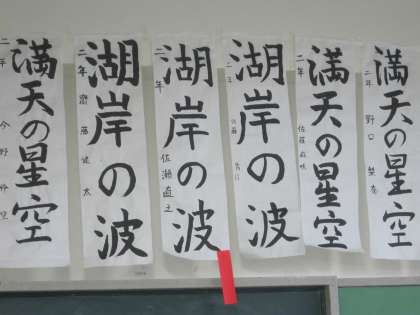 満天の星空
二年 野口
満天の星空
二年 佐藤
湖岸の波
二年 佐藤
湖岸の波
二年 佐瀬直之
湖岸の波
二年 齋藤健太
満天の星空
二年 今野